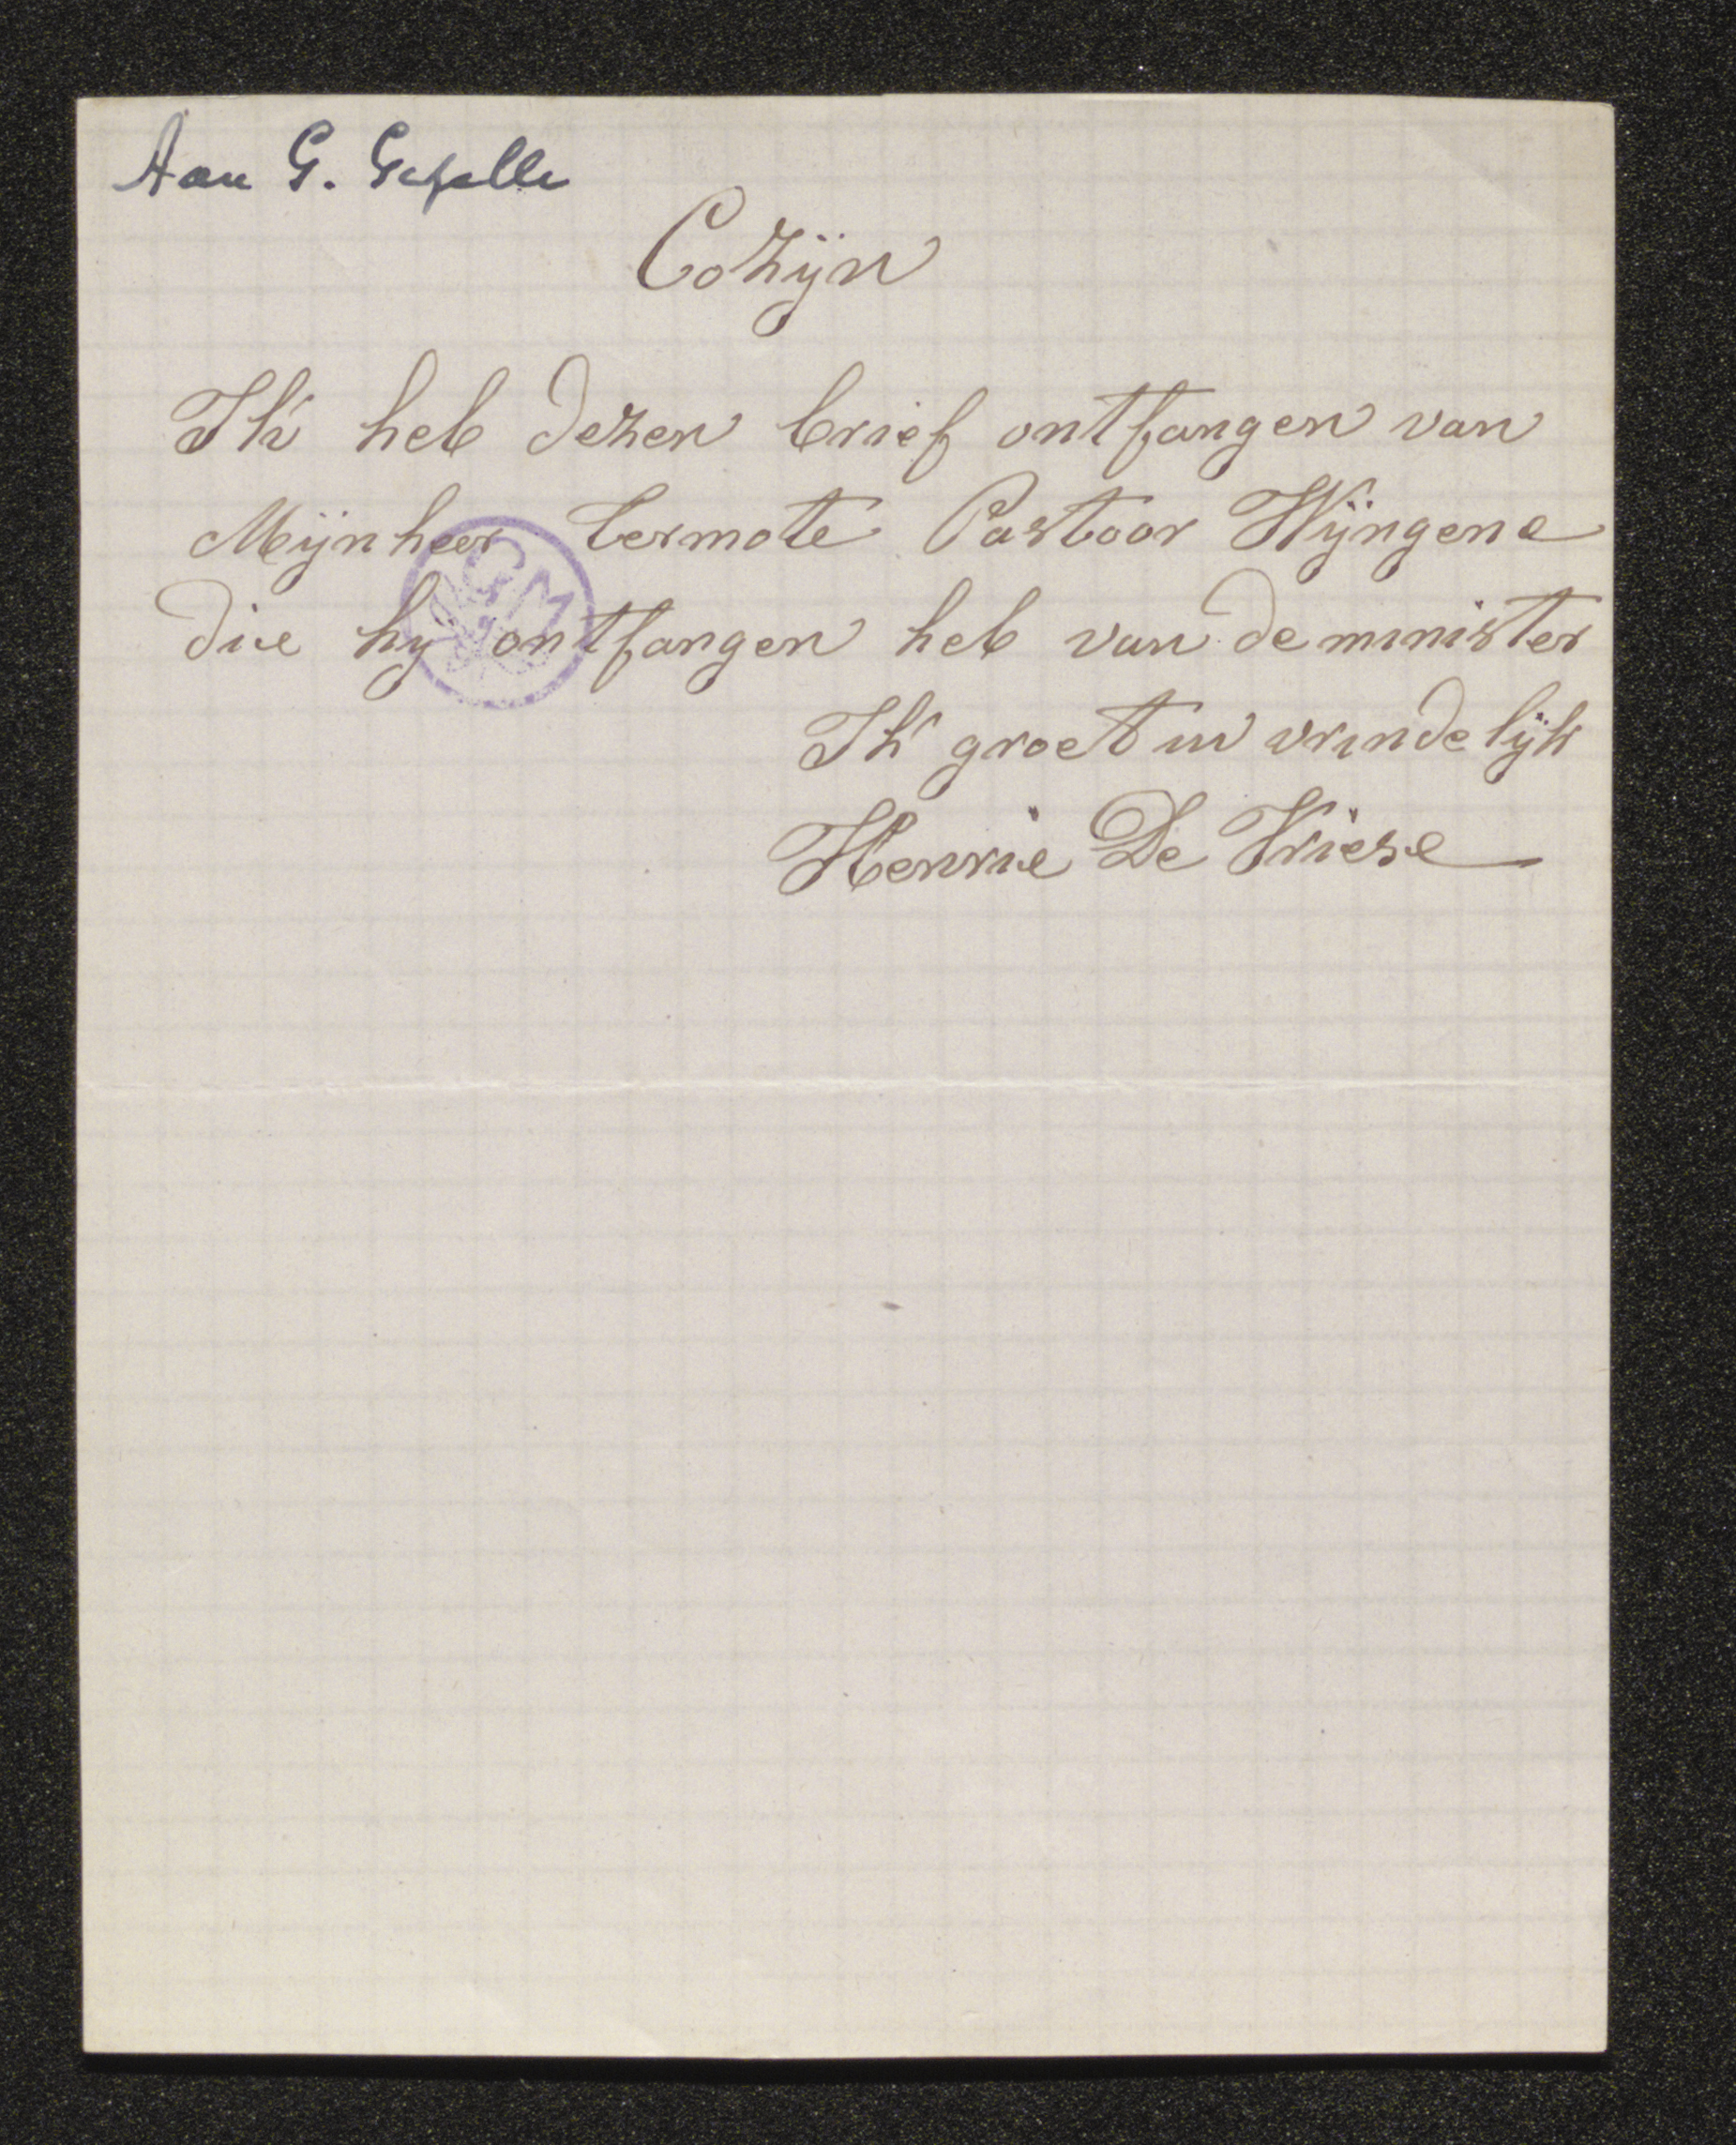 Aan G. Gezelle
Cozijn
Ik heb dezen brief ontfangen van
Mijnheer Termote Pastoor Wijngene
die hij ontfangen heb van de minister
Ik groet uw vrindelijk
Henrie De Vriese
GGM